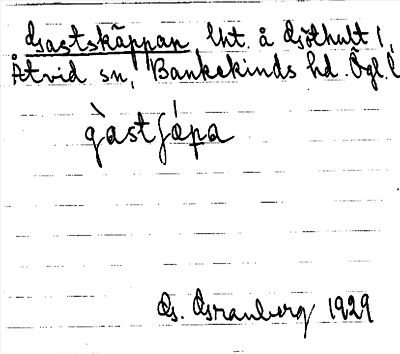 Gastskäppan lht. å Gjöthult 1,
Åtvid sn, Bankekinds hd. Ögl. l
gàstʃǽpa
Gs. Granberg 1929